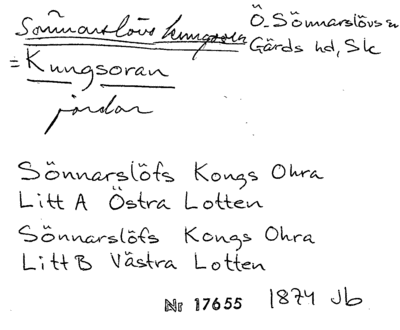 Sönnarslövs kungsoran
Ö. Sönnarslövs sn
Gärds hd, Sk
= Kungsoran
jordar
Sönnarslöfs Kongs Ohra
Litt A Östra Lotten
Sönnarslöfs Kongs Ohra
Litt B Västra Lotten
Nr 17655 1874 Jb